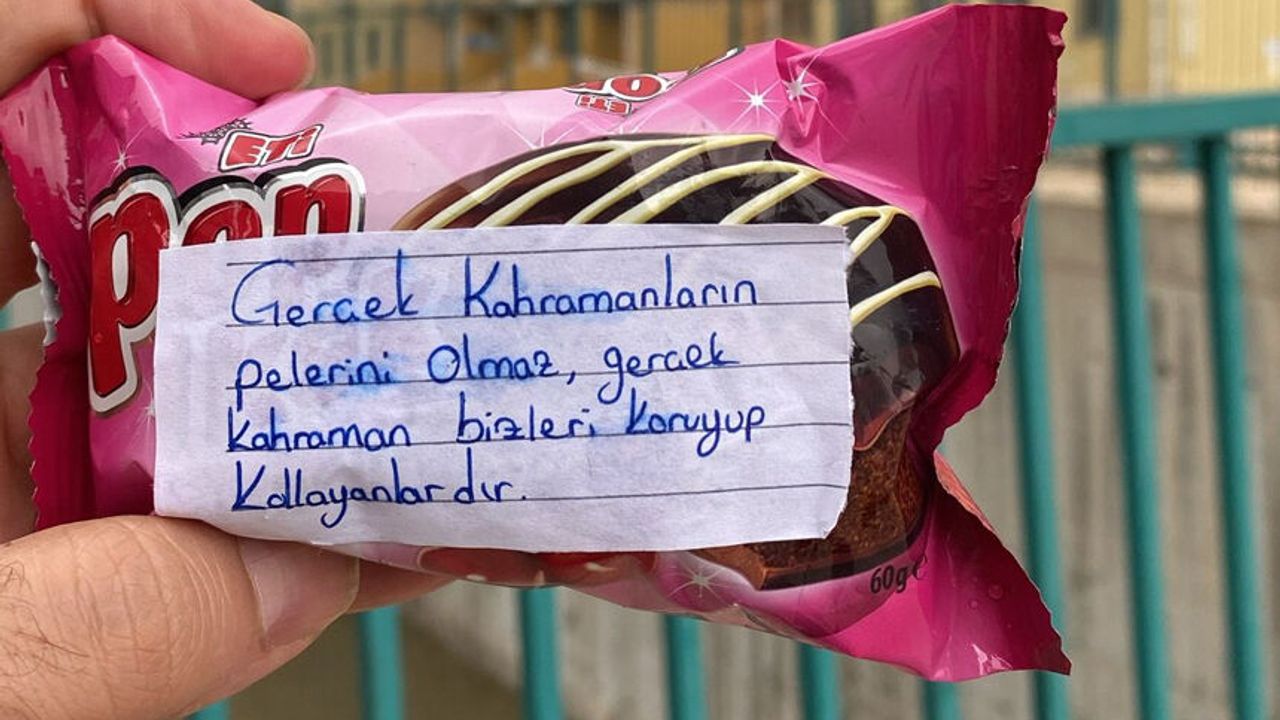 ETİ
pop
ETİ
PO
Gercek Kahramanların
pelerini Olmaz, gercek
kahraman bizleri Koruyup
Kollayanlardır.
60g e